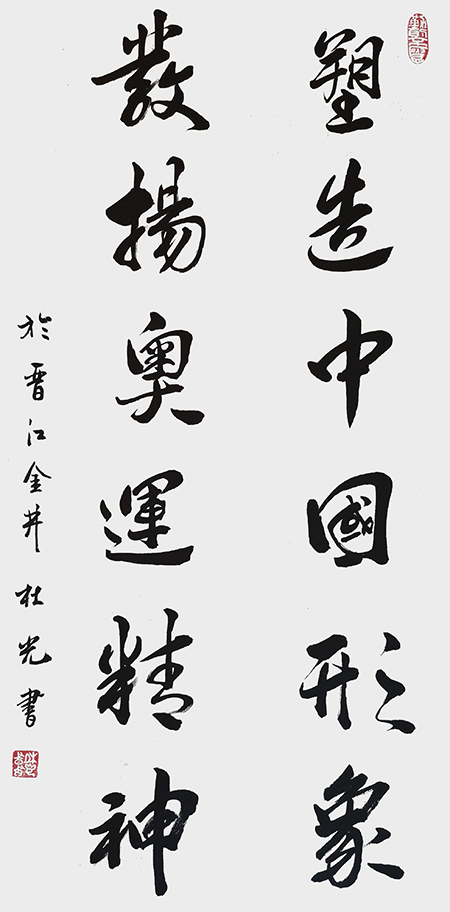 塑造中國形象
發揚奧運精神
於晋江金井 杜光書